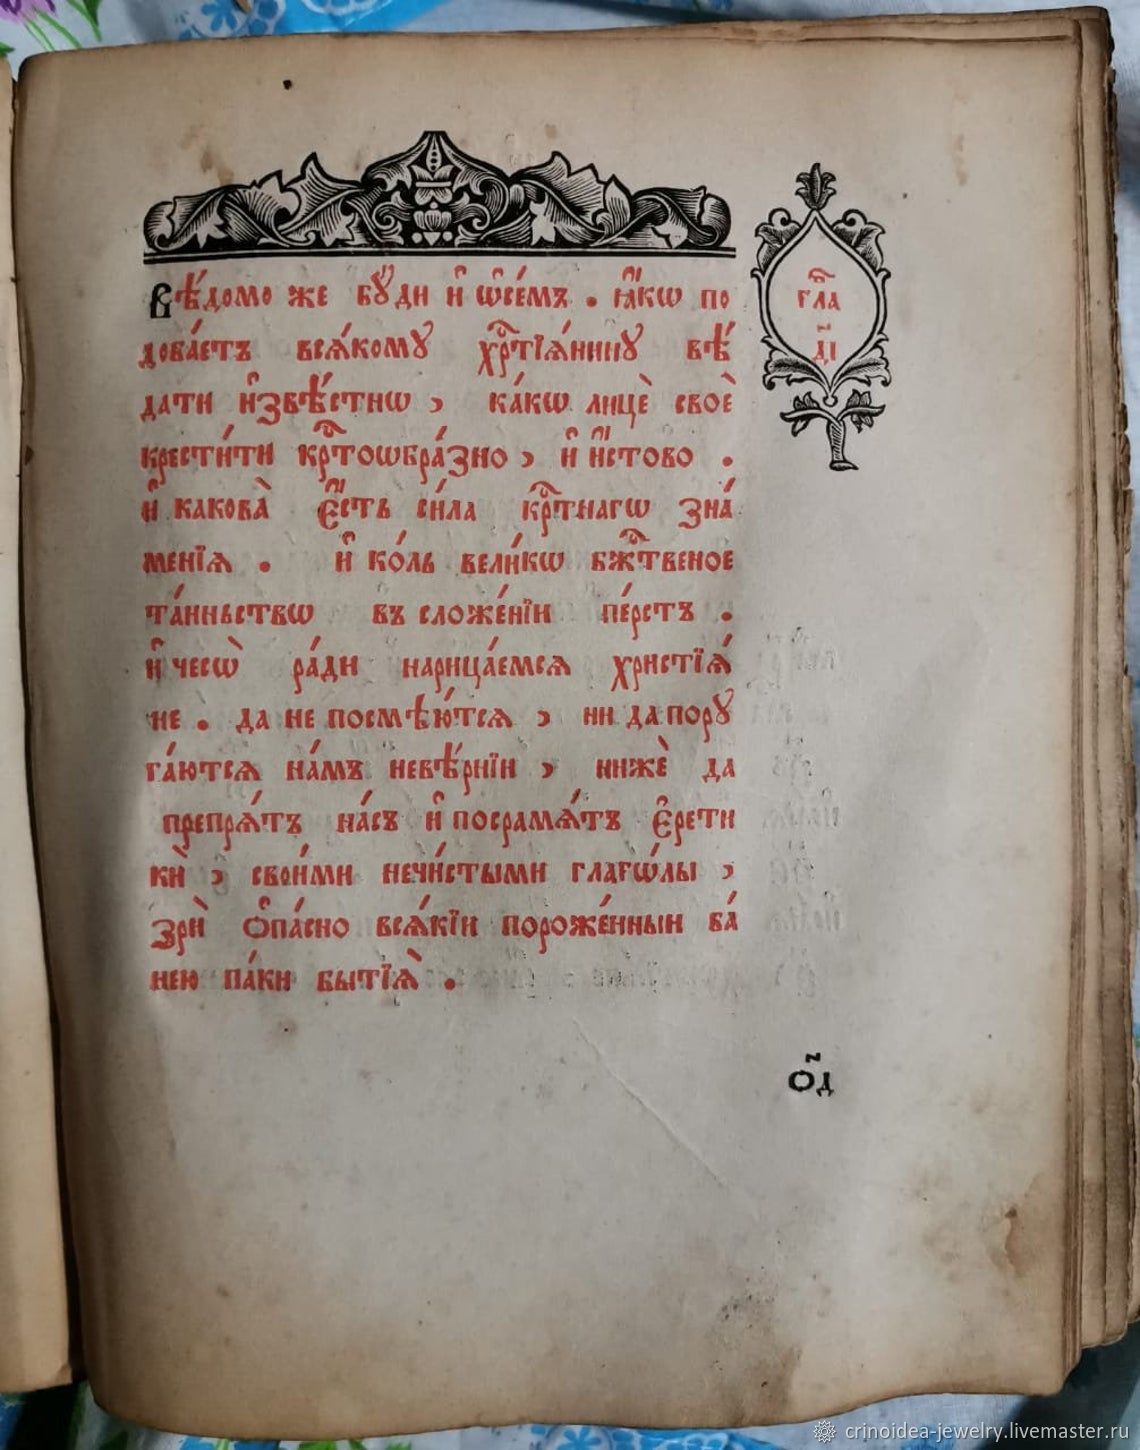 Вѣ́домо же бꙋ́ди и҆ ѡ҆се́мъ . ꙗ҆́кѡ по
доба́етъ всѧ́комꙋ хрⷭ҇тїѧ́нинꙋ вѣ́
дати и҆звѣ́стнѡ , ка́кѡ лицѐ своѐ
крести́ти крⷭ҇тоѡбра́зно , и҆ и҆́стово .
и҆ какова̀ є҆́сть си́ла крⷭ҇тнагѡ зна́
менїѧ . и҆ ко́ль вели́кѡ бж҇твеное
та́иньствѡ въ сложе́нїи пе́рстъ .
и҆ чесѡ̀ ра́ди нарица́емсѧ христїѧ́
не . да не посмѣю́тсѧ , ни да порꙋ
га́ютсѧ на́мъ невѣ́рнїи , нижѐ да
препрѧ́тъ на́съ и҆ посрамѧ́тъ є҆рети
кѝ , свои́ми нечи́стыми глаго́лы ,
зрѝ ѻ҆па́сно всѧ́кїи пороже́нныи ба́
нею па́ки бытїѧ̀ .
гла
д҃і
о҃д
crinoidea-jewelry.livemaster.ru